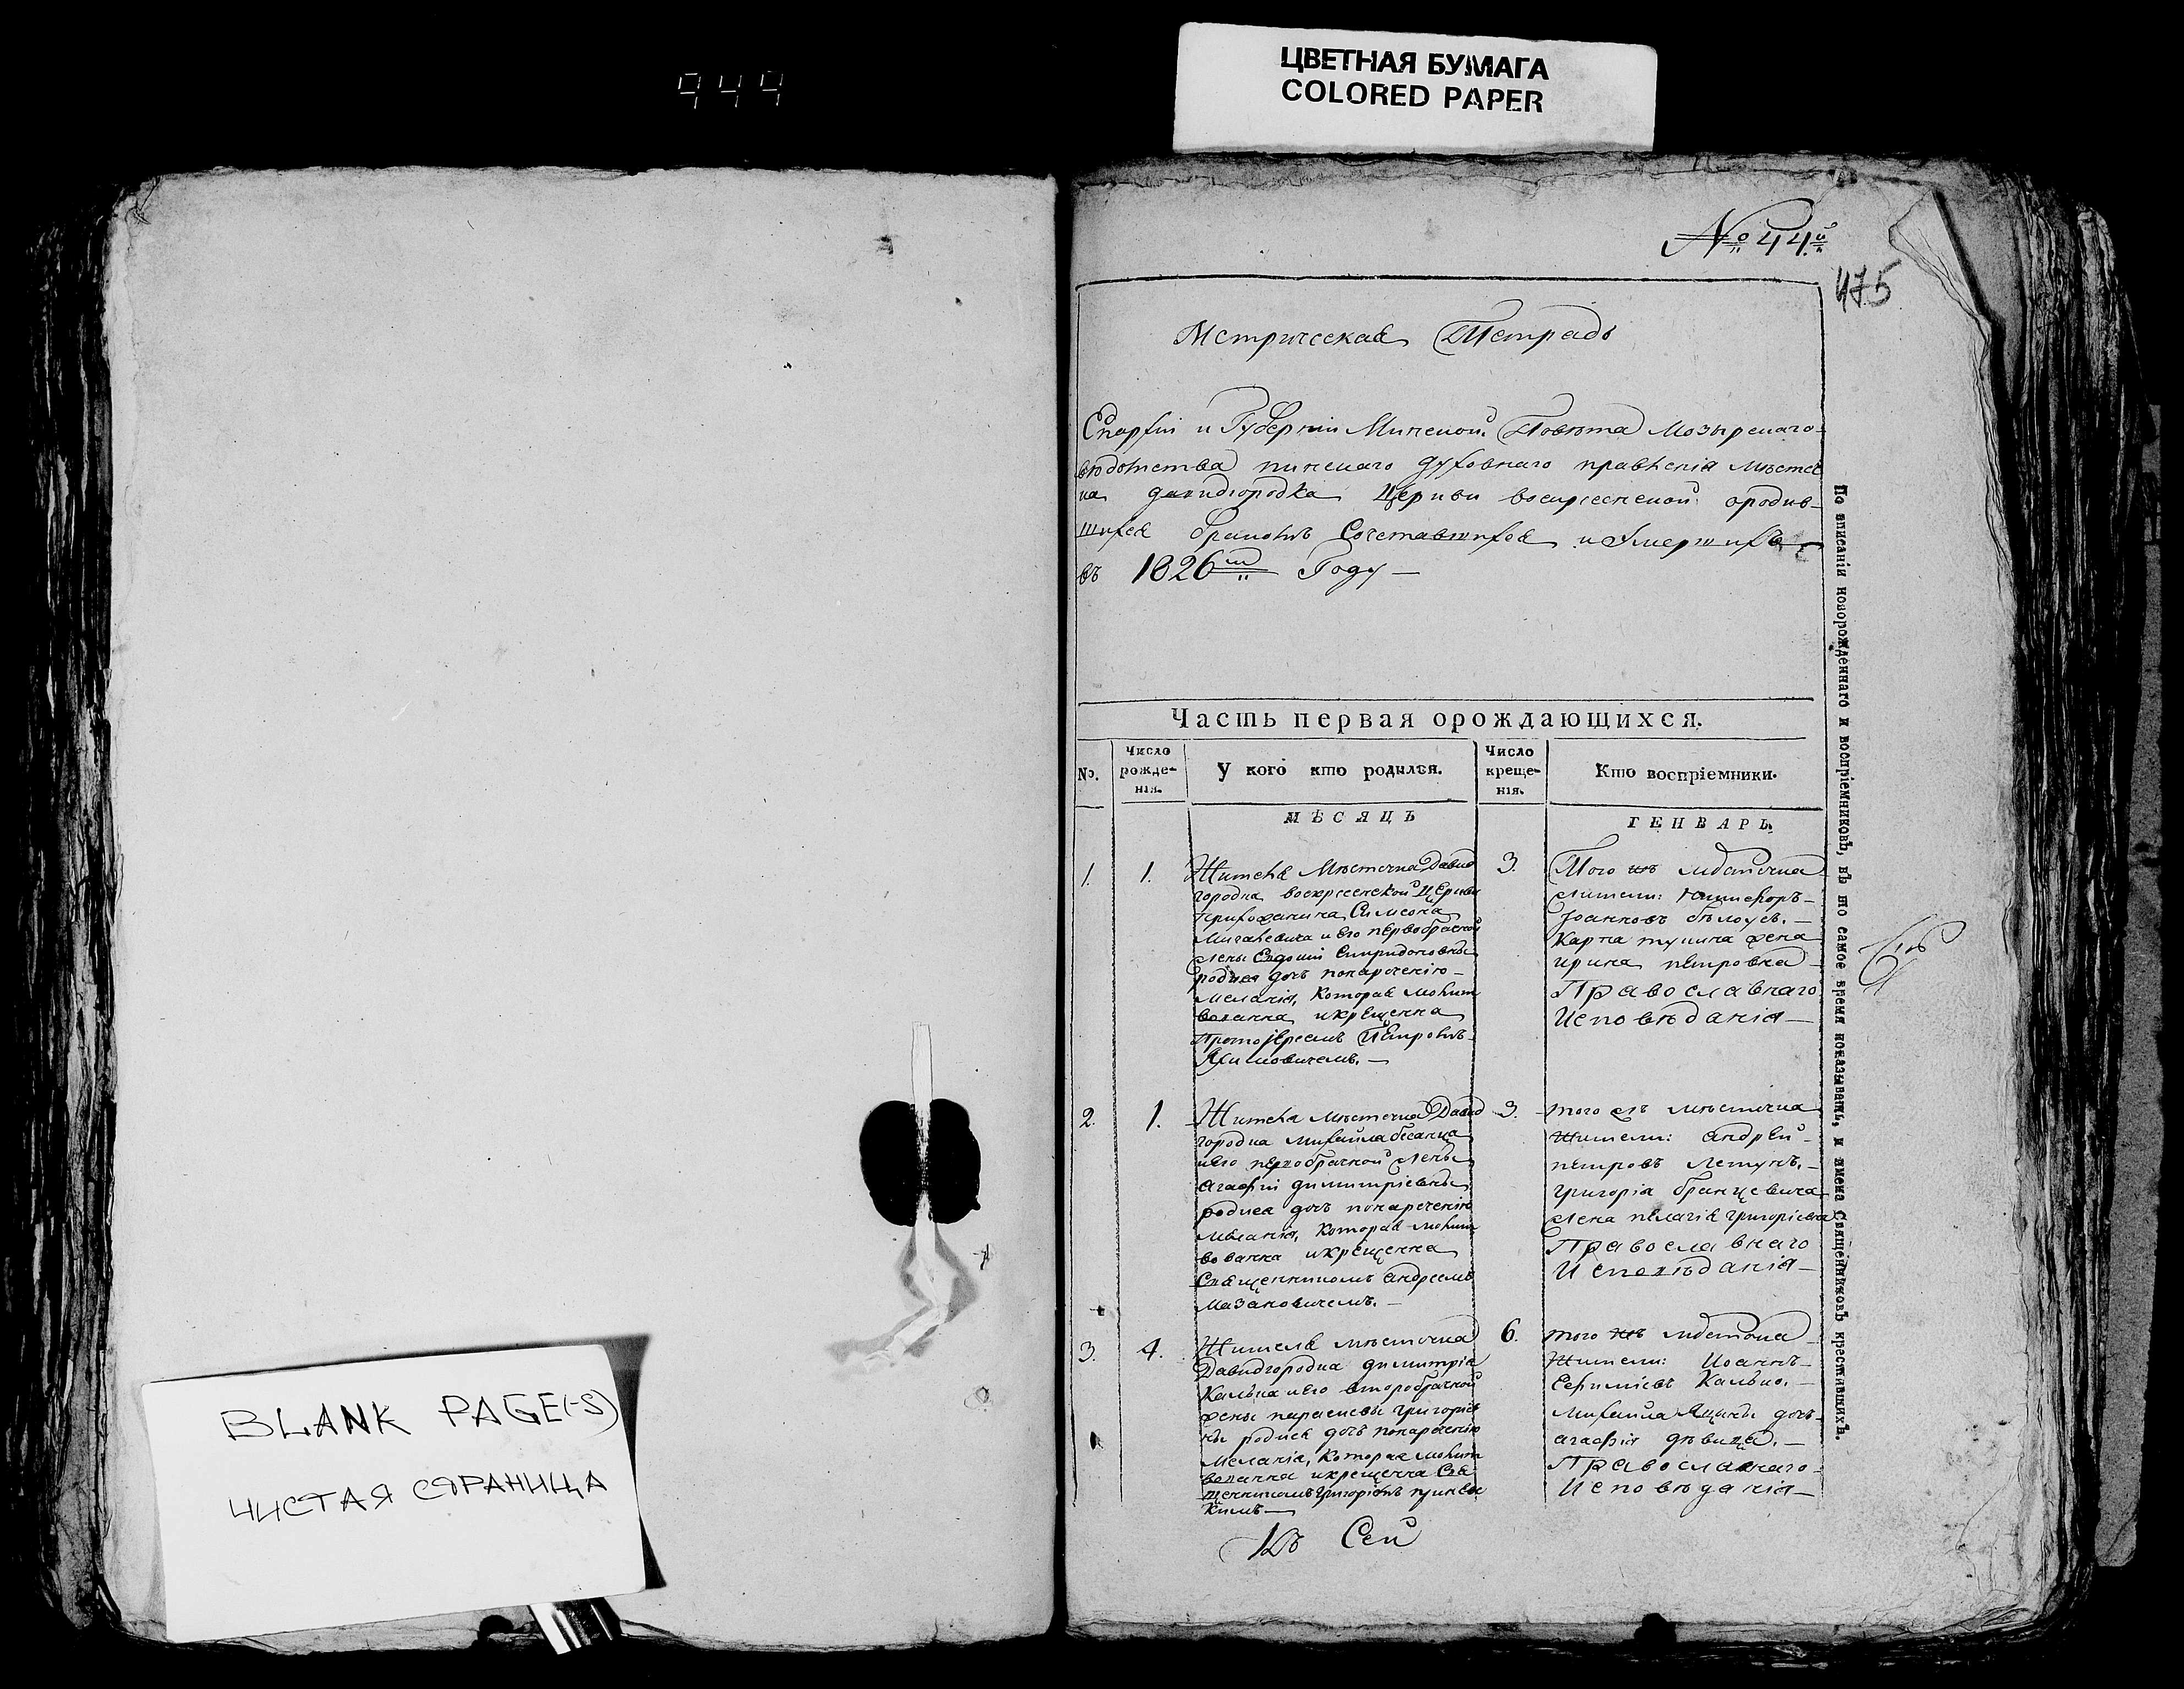 944
ЦВЕТНАЯ БУМАГА
COLORED PAPER
№ 44й
475
Метрическая Тетрадь
Епархіи и Губерніи Минской Повѣта Мозырскаго
вѣдомства пинскаго духовнаго правленія мѣстеч
ка давидгородка Церкви воскресенской ородив-
шихся бракомъ Сочетавшихся и Умершихъ
въ 1826м Году —
Часть первая орождающихся.
No.
Число рожде- нія.
У кого кто родился.
Число креще- нія.
Кто воспріемники.
МѢСЯЦЪ
ГЕНВАРЬ
1.
1.
Жителя Мѣстечка Давид
городка воскресенской Церкви
прихожанина Симеона
и его первобрачной
жены Евдокіи Спиридоновны
родися дочь понареченію
Меланія, Которая молит
вованна икрещенна
Протоіереемъ Петромъ
3.
Того жъ мѣстечка
жители: Никифоръ
Іоанновъ бѣлоусъ. —
Карпа тупика жена
ирина петровна
Православнаго
Исповѣданія —
2.
1.
Жителя мѣстечка Давид
городка михайла
иего первобрачной жены
агафіи димитріевны
родися дочь понареченію
меланія, Которая молит
вованна икрещенна
Священникомъ андреемъ
мазановичемъ. —
3.
того жъ мѣстечка
жители: андрей
петровъ летунъ. —
григорія бранцевича
жена пелагія григоріевна
Православнаго
Исповѣданія —
3.
4.
Жителя мѣстечка
Давидгородка димитрія
иего второбрачной
жены параскевы григоріев
ны родися дочь понареченію
Меланія, Которая молит
вованна икрещенна Свя
щенникомъ григоріемъ
6.
того жъ мѣстечка
жители: Иоаннъ
Михайла Яцыны дочь
агафія дѣвица. —
Православнаго
Исповѣданія —
Сей
По вписаніи новорожденнаго и воспріемниковъ, въ то самое время показывать, и имена Священниковъ крестившихъ.
BLANK PAGE(-S)
ЧИСТАЯ СТРАНИЦА